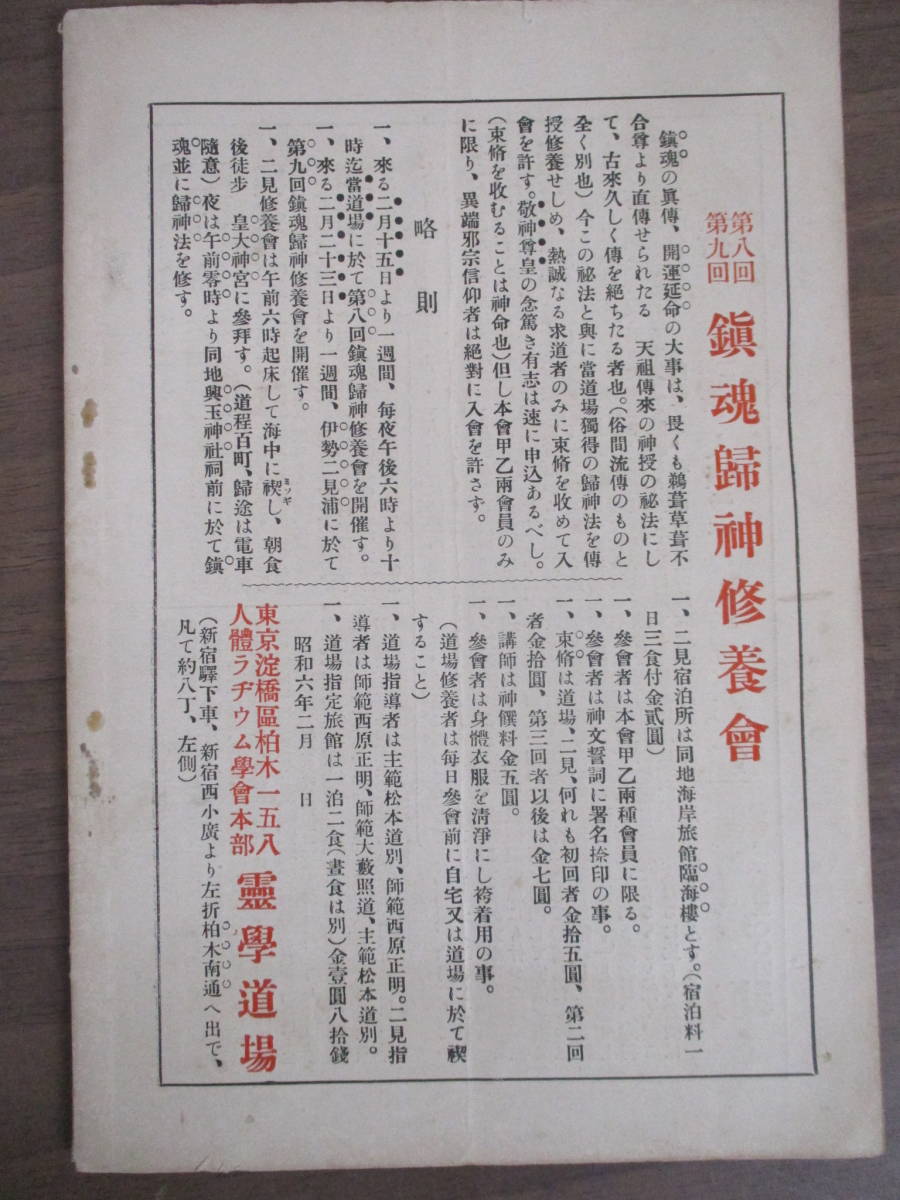 第八回
第九回
鎭魂歸神修養會
鎭魂の眞傳、開運延命の大事は、畏くも鵜葺草葺不
合尊より直傳せられたる 天祖傳來の神授の祕法にし
て、古來久しく傳を絶ちたる者也。(俗間流傳のものと
全く別也)今この祕法と與に當道場獨得の歸神法を傳
授修養せしめ、熱誠なる求道者のみに束脩を收めて入
會を許す。敬神尊皇の念篤き有志は速に申込あるべし。
(束脩を收むることは神命也)但し本會甲乙兩會員のみ
に限り、異端邪宗信仰者は絶對に入會を許さす。
略則
一、來る二月十五日より一週間、毎夜午後六時より十
時迄當道場に於て第八回鎭魂歸神修養會を開催す。
一、來る二月二十三日より一週間、伊勢二見浦に於て
第九回鎭魂歸神修養會を開催す。
一、二見修養會は午前六時起床して海中に禊し、朝食
ミソギ
後徒歩 皇大神宮に參拜す。(道程百町、歸途は電車
隨意)夜は午前零時より同地興玉神社祠前に於て鎭
魂並に歸神法を修す。
一、二見宿泊所は同地海岸旅館臨海樓とす。(宿泊料一
日三食付金貳圓)
一、參會者は本會甲乙兩種會員に限る。
一、參會者は神文誓詞に署名捺印の事。
一、束脩は道場、二見、何れも初回者金拾五圓、第二回
者金拾圓、第三回者以後は金七圓。
一、講師は神饌料金五圓。
一、參會者は身體衣服を淸淨にし袴着用の事。
(道場修養者は毎日參會前に自宅又は道場に於て禊
すること)
一、道場指導者は主範松本道別、師範西原正明。二見指
導者は師範西原正明、師範大藪照道、主範松本道別。
一、道場指定旅館は一泊二食(晝食は別)金壹圓八拾錢
昭和六年二月 日
東京淀橋區柏木一五八
人體ラヂウム學會本部
靈學道場
(新宿驛下車、新宿西小廣より左折柏木南通へ出で、
凡て約八丁、左側)